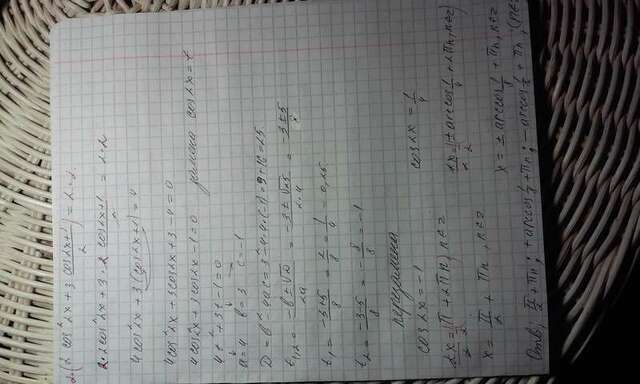 2·(2 cos²2x + 3 (cos2x+1)/2) = 2·2
2·2cos²2x + 3·2 (cos2x+1)/2 = 2·2
4cos²2x + 3(cos2x+1) = 4
4cos²2x + 3cos2x + 3 - 4 = 0
4cos²2x + 3cos2x - 1 = 0 замена cos2x = t
4t² + 3t - 1 = 0
a = 4 b = 3 c = -1
D = b² - 4ac = 3² - 4·4·(-1) = 9 + 16 = 25
t₁,₂ = (-b ± √D)/2a = (-3 ± √25)/(2·4) = (-3 ± 5)/8
t₁ = (-3+5)/8 = 2/8 = 1/4 = 0,25
t₂ = (-3-5)/8 = -8/8 = -1
перезамена
cos2x = -1 cos2x = 1/4
2x/2 = 1/2(π + 2πn), n∈z 2x/2 = 1/2(± arccos 1/4 + 2πn, n∈z)
x = π/2 + πn, n∈z
x = ± arccos 1/8 + πn, n∈z
Отв; π/2 + πn; + arccos 1/8 + πn; - arccos 1/8 + πn;